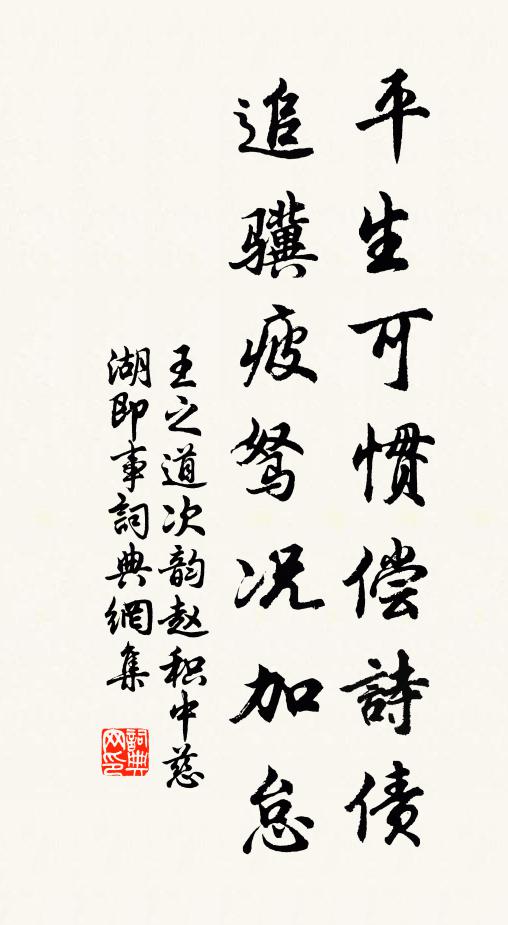 平生可惯偿詩债
追骥疲驽况加怠
王之道次韵赵积中慈
湖即事詞典網集
詞典
网印